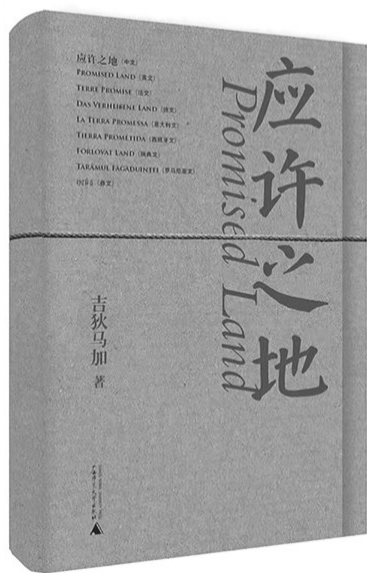 应许之地（中文）
PROMISED LAND（英文）
TERRE PROMISE（法文）
DAS VERHEIßENE LAND（德文）
LA TERRA PROMESSA（意大利文）
TIERRA PROMETIDA（西班牙文）
FÖRLOVAT LAND（瑞典文）
TĂRÂMUL FĂGĂDUINȚEI（罗马尼亚文）
（彝文）
应许之地
Promised Land
吉狄马加 著
广西师范大学出版社